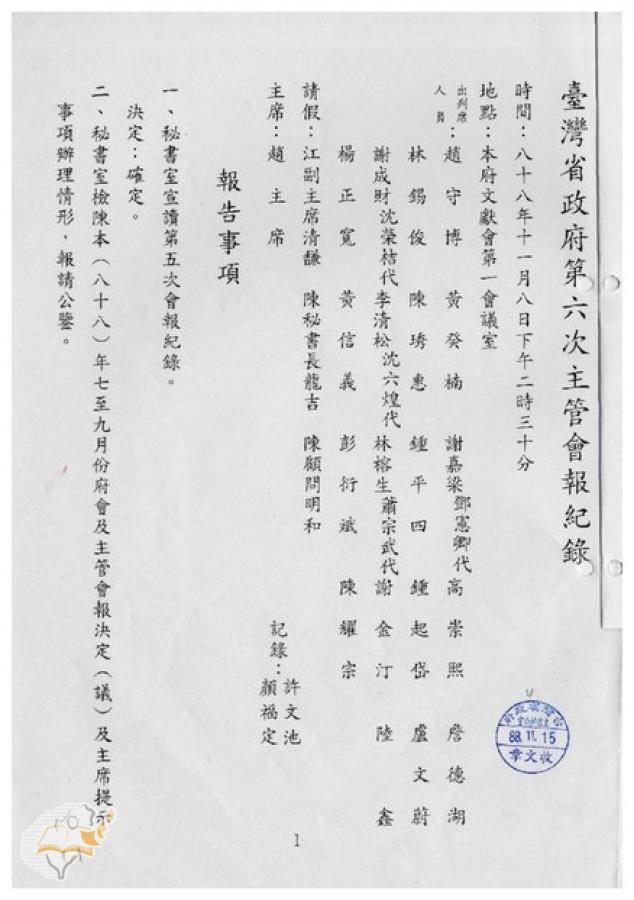 臺灣省政府第六次主管會報紀錄
時間：八十八年十一月八日下午二時三十分
地點：本府文獻會第一會議室
出列席人員：趙守博　黃癸楠　謝嘉梁鄧憲卿代　高崇熙　詹德湖
林錫俊　陳琇惠　鍾平四　鍾起岱　盧文蔚
謝成財沈榮桔代　李清松沈六煌代　林榕生蕭宗武代　謝金汀　陸鑫
楊正寬　黃信義　彭衍斌　陳耀宗
請假：江副主席清馦　陳秘書長龍吉　陳顧問明和
主席：趙主席　記錄：許文池
顏福定
報告事項
一、秘書室宣讀第五次會報紀錄。
決定：確定。
二、秘書室檢陳本（八十八）年七至九月份府會及主管會報決定（議）及主席提示
事項辦理情形，報請公鑒。
88.11.15
收文章
1